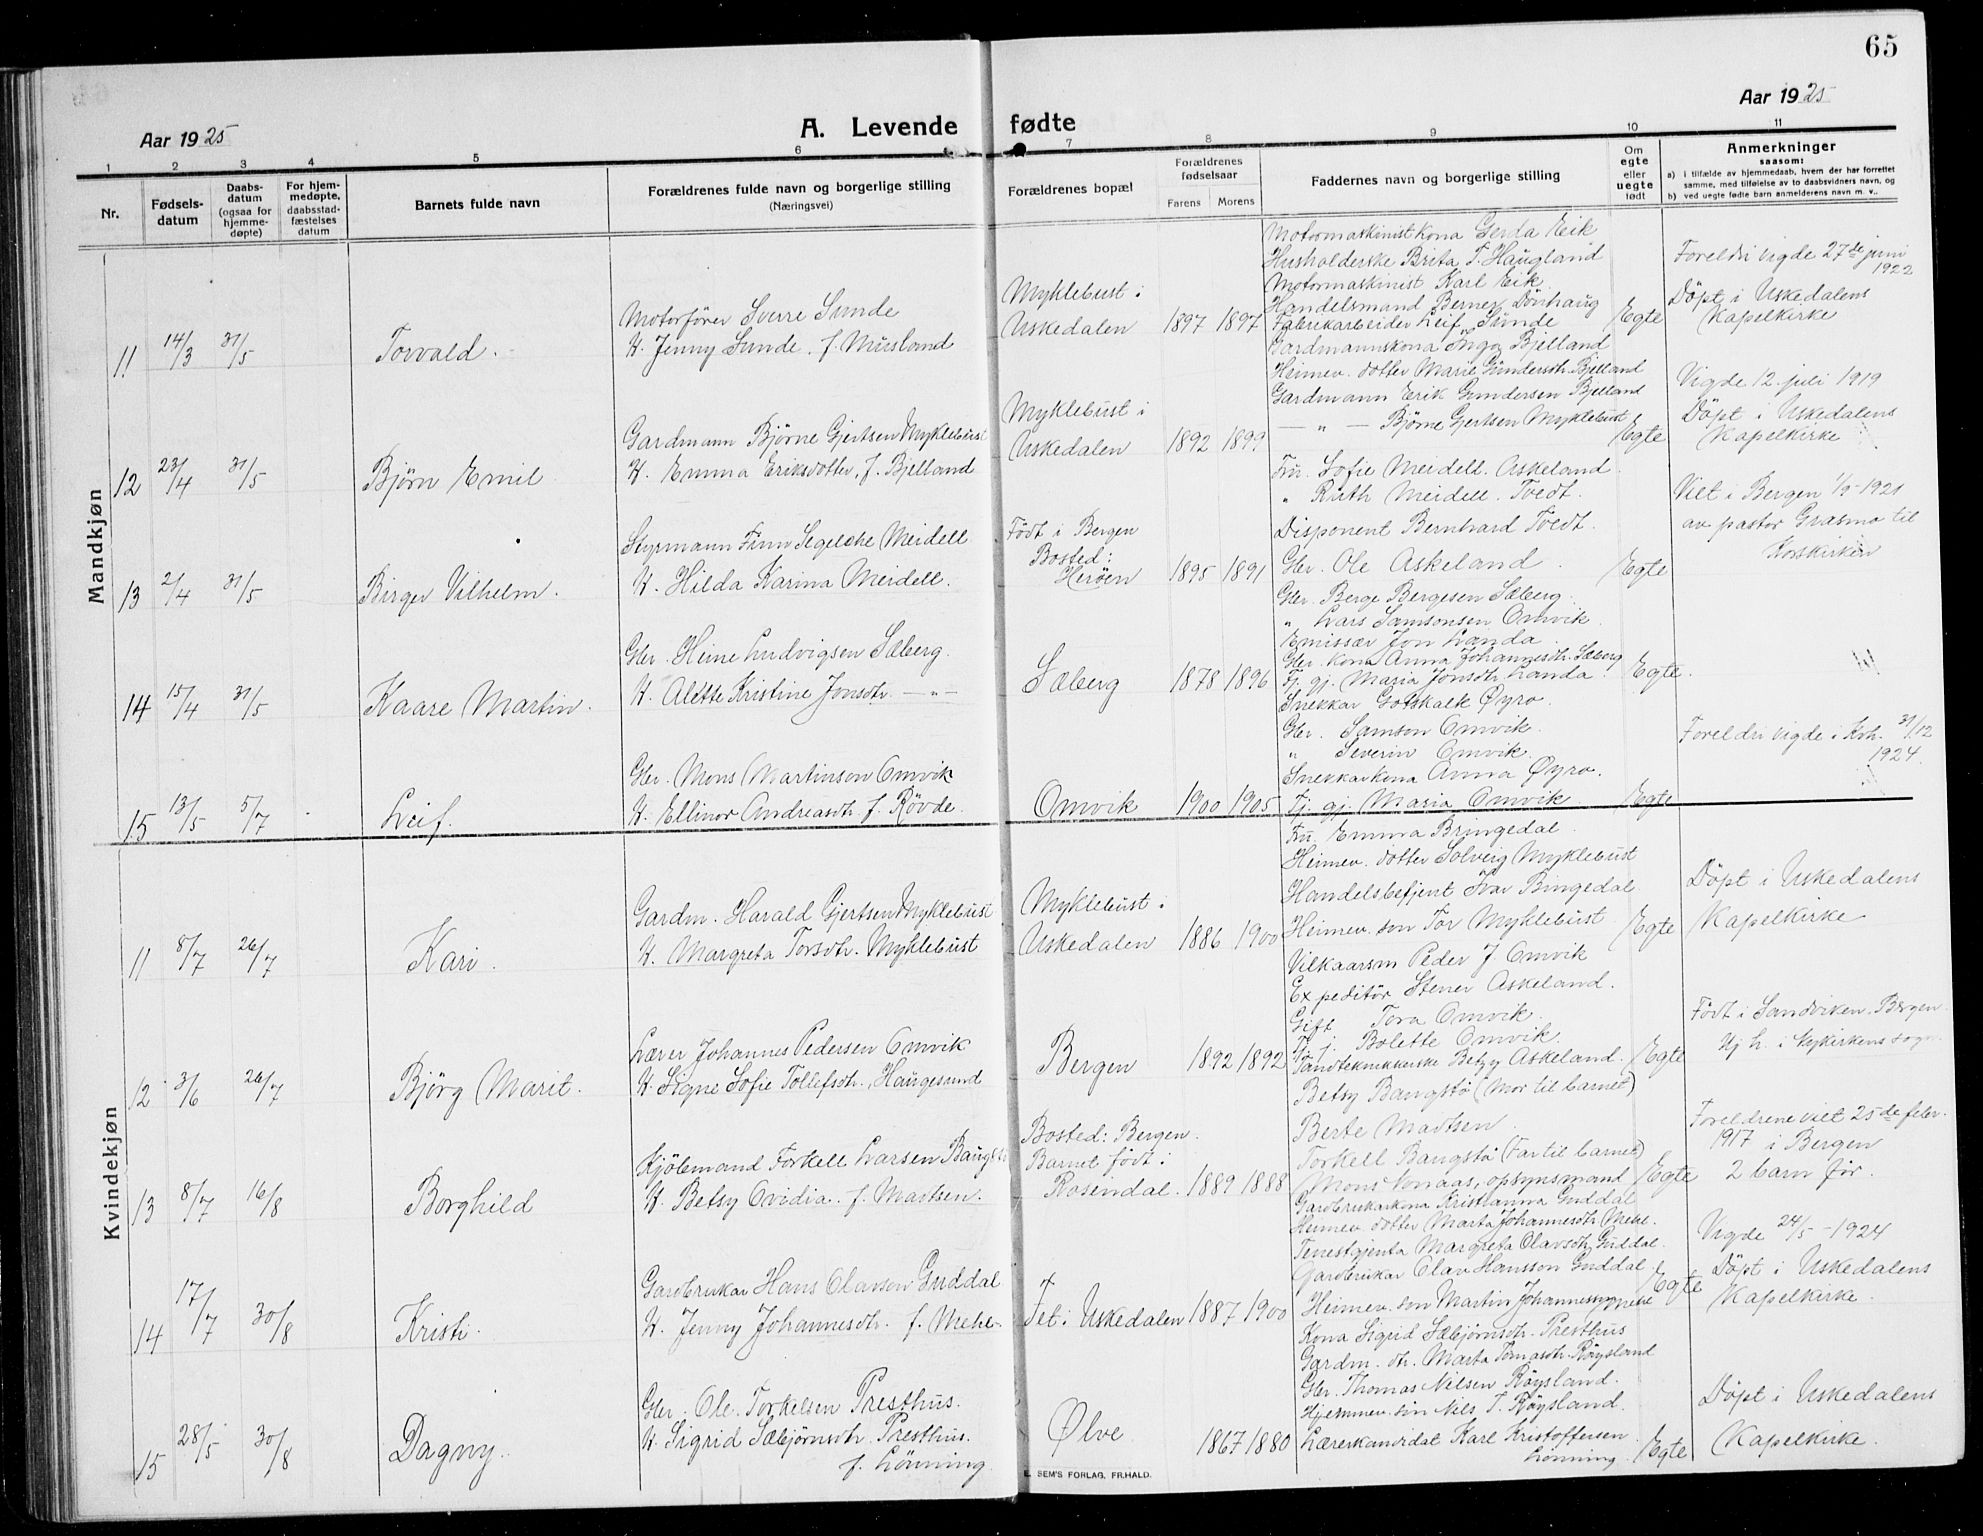 65
Aar 1925
A. Levende fødte
Aar 1925
1 2 3 4 5 6 7 8 9 10 11
Nr.
Fødsels-datum
Daabs-datum (ogsaa for hjemme-døpte)
For hjem-medøpte, daabsstad-fæstelses datum
Barnets fulde navn
Forældrenes fulde navn og borgerlige stilling
(Næringsvei)
Forældrenes bopæl
Forældrenes fødselsaar
Farens Morens
Faddernes navn og borgerlige stilling
Om egte eller uegte født
Anmerkninger
saasom:
a) i tilfælde av hjemmedaab, hvem der har forrettet samme, med tilføielse av to daabsvidners navn, og
b) ved uegte fødte barn anmelderens navn m. v..
Mandkjøn
11 14/3 31/5 Torvald.
Motorfører Sverre Sunde
K. Jenny Sunde. f. Musland
Myklebust i
Uskedalen 1897 1897
Motormaskinist kona Gerda Eik
Husholderske Brita T. Haugland
Motormaskinist Karl Eik
Handelsmand Berner Dönhaug
Fabrikarbeider Leif Sunde
Egte
Foreldri vigde 27de juni
1922
Döpt i Uskedalens
Kapelkirke
12 23/4 31/5 Bjørn Emil
Gardmann Bjørne Gjertsen Myklebust
K. Emma Eriksdotter, f. Bjelland
Myklebust i
Uskedalen 1892 1899
Gardmannskona Inga Bjelland
Heimev. dotter Marie Gundersdtr. Bjelland
Gardmann Erik Gundersen Bjelland
— " — Bjørne Gjertsen Myklebust
Egte
Vigde 12. juli 1919
Döpt i Uskedalens
Kapelkirke
13 2/4 31/5 Birger Vilhelm.
Styrmann Finn Segelcke Meidell
K. Hilda Karina Meidell.
Födt i Bergen
Bosted:
Herøen 1895 1891
Fru. Sofie Meidell. Askeland.
" Ruth Meidell. Tvedt.
Disponent Bernhard Tvedt.
Gbr. Ole Askeland.
Egte
Viet i Bergen 1/9-1921
av pastor Grasmo til
Korskirken
14 15/4 31/5 Kaare Martin.
Gbr. Heine Ludvigsen Sæberg.
K. Alette Kristine Jonsdtr. — " —
Sæberg 1878 1896
Gbr. Berge Bergesen Sæberg.
" Lars Samsonsen Omvik.
Emissær Jon Landa.
Gbr. kona Anna Johannesdtr. Sæberg
Tj. gj. Maria Jonsdtr. Landa.
Egte.
15 13/5 5/7 Leif.
Gbr. Mons Martinson Omvik
K. Ellinor Andreasdtr. f. Røvde.
Omvik 1900 1905
Snekkar Gotskalk Øyro.
Gbr. Samson Omvik.
" Severin Omvik
Snekkarkona Anna Øyro.
Tj. gj. Maria Omvik
Egte
Foreldri vigde i Kvh. 31/12
1924.
Kvindekjøn
11 8/7 26/7 Kari.
Gardm. Harald Gjertsen Myklebust
K. Margreta Torsdtr. Myklebust
Myklebust i
Uskedalen 1886 1900
Fru. Emma Bringedal.
Heimev. dotter Solveig Myklebust
Handelsbetjent Ivar Bingedal
Heimev. son Tor Myklebust
Egte
Döpt i Uskedalens
Kapelkirke
12 3/6 26/7 Björg Marit.
Lærer Johannes Pedersen Omvik
K. Signe Sofie Tollefsdtr. Haugesund
Bergen 1892 1892
Vilkaarsm Peder J. Omvik
Expeditör Stener Askeland.
Gift Tora Omvik.
Tj. Bolette Omvik.
Tandteknikkerske Betzy Askeland.
Egte
Födt i Sandviken. Bergen
Hj. h. i Nykirkens sogn.
13 8/7 16/8 Borghild
Kjöbmand Torkell Larsen Baugstö
K. Betsy Ovidia. f. Madtsen.
Bosted: Bergen.
Barnet födt i
Rosendal. 1889 1888
Betsy Bangstö (Mor til barnet)
Berte Madtsen.
Torkell Bangstö (Far til barnet)
Mons Vonaas, opsynsmand
Egte
Foreldrene viet 25de febr.
1917 i Bergen
2 barn för.
14 17/7 30/8 Kristi.
Gardbrukar Hans Olavson Guddal
K. Jenny Johannesdtr. f. Mehl
Fet i Uskedalen 1887 1900
Gardbrukarkona Kristianna Guddal
Heimev. dotter Marta Johannesdtr. Mehl.
Tenestgjenta Margreta Olavsdtr. Guddal.
Gardbrukar Olav Hansson Guddal.
Heimev. son Martin Johannesson
Egte
Vigde 24/5-1924
Döpt i Uskedalens
Kapelkirke.
15 28/5 30/8 Dagny.
Gbr. Ole. Torkelsen Presthus.
K. Sigrid Sæbjørnsdtr. Presthus.
f. Lönning.
Ølve 1867 1880
Kona Sigrid Sæbjørnsdtr. Presthus
Gardm. dtr. Marta Tomasdtr. Röysland
Gbr. Thomas Nilsen Röysland.
Hjemmev. sön Nils T. Röysland.
Lærerkandidat Karl Kristoffersen
Lönning.
Egte
Döpt i Uskedalens
Kapelkirke.
E. SEM'S FORLAG, FR.HALD.